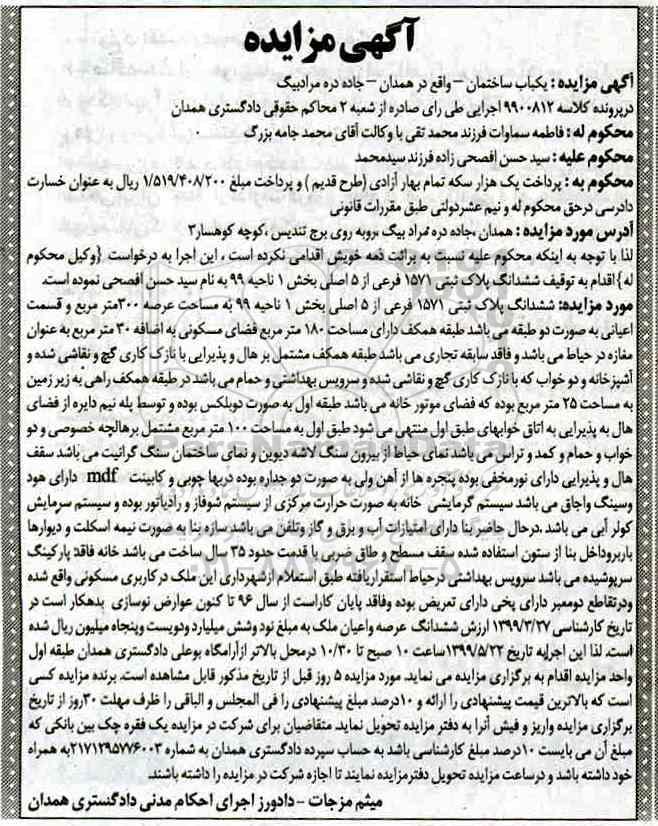 آگهی مزایده
آگهی مزایده : یکباب ساختمان – واقع در همدان – جاده دره مرادبیگ
درپرونده کلاسه ۹۹۰۰۸۱۲ اجرایی طی رای صادره از شعبه ۲ محاکم حقوقی دادگستری همدان
محکوم له : فاطمه سماوات فرزند محمد تقی با وکالت آقای محمد جامه بزرگ
محکوم علیه : سید حسن افصحی زاده فرزند سیدمحمد
محکوم به : پرداخت یک هزار سکه تمام بهار آزادی (طرح قدیم ) و پرداخت مبلغ ۱/۵۱۹/۴۰۸/۲۰۰ ریال به عنوان خسارت
دادرسی درحق محکوم له و نیم عشردولتی طبق مقررات قانونی
آدرس مورد مزایده : همدان ،جاده دره مراد بیگ ،روبه روی برج تندیس ،کوچه کوهسار۳
لذا با توجه به اینکه محکوم علیه نسبت به برائت ذمه خویش اقدامی نکرده است ، این اجرا به درخواست {وکیل محکوم
له}اقدام به توقیف ششدانگ پلاک ثبتی ۱۵۷۱ فرعی از ۵ اصلی بخش ۱ ناحیه ۹۹ به نام سید حسن افصحی نموده است.
مورد مزایده: ششدانگ پلاک ثبتی ۱۵۷۱ فرعی از ۵ اصلی بخش ۱ ناحیه ۹۹ به مساحت عرصه ۳۰۰متر مربع و قسمت
اعیانی به صورت دو طبقه می باشد طبقه همکف دارای مساحت ۱۸۰ متر مربع فضای مسکونی به اضافه ۳۰ متر مربع به عنوان
مغازه در حیاط می باشد و فاقد سابقه تجاری می باشد طبقه همکف مشتمل بر هال و پذیرایی با نازک کاری گچ و نقاشی شده و
آشپزخانه و دو خواب که با نازک کاری گچ و نقاشی شده و سرویس بهداشتی و حمام می باشد در طبقه همکف راهی به زیر زمین
به مساحت ۲۵ متر مربع بوده که فضای موتور خانه می باشد طبقه اول به صورت دوبلکس بوده و توسط پله نیم دایره از فضای
هال به پذیرایی به اتاق خوابهای طبق اول منتهی می شود طبق اول به مساحت ۱۰۰ متر مربع مشتمل برهالچه خصوصی و دو
خواب و حمام و کمد و تراس می باشد نمای حیاط از بیرون سنگ لاشه دیوین و نمای ساختمان سنگ گرانیت می باشد سقف
هال و پذیرایی دارای نورمخفی بوده پنجره ها از آهن ولی به صورت دو جداره بوده دربها چوبی و کابینت mdf دارای هود
وسینگ واجاق می باشد سیستم گرمایشی خانه به صورت حرارت مرکزی از سیستم شوفاژ و رادیاتور بوده و سیستم سرمایش
کولر آبی می باشد .درحال حاضر بنا دارای امتیازات آب و برق و گاز وتلفن می باشد سازه بنا به صورت نیمه اسکلت و دیوارها
باربروداخل بنا از ستون استفاده شده سقف مسطح و طاق ضربی با قدمت حدود ۳۵ سال ساخت می باشد خانه فاقد پارکینگ
سرپوشیده می باشد سرویس بهداشتی درحیاط استقراریافته طبق استعلام ازشهرداری این ملک درکاربری مسکونی واقع شده
ودرتقاطع دومعبر دارای پخی دارای تعریض بوده وفاقد پایان کاراست از سال ۹۶ تا کنون عوارض نوسازی بدهکار است در
تاریخ کارشناسی ۱۳۹۹/۳/۲۷ ارزش ششدانگ عرصه واعیان ملک به مبلغ نود وشش میلیارد ودویست وپنجاه میلیون ریال شده
است. لذا این اجرابه تاریخ ۱۳۹۹/۵/۲۲ساعت ۱۰ صبح تا ۱۰/۳۰ درمحل بالاتر ازآرامگاه بوعلی دادگستری همدان طبقه اول
واحد مزایده اقدام به برگزاری مزایده می نماید. مورد مزایده ۵ روز قبل از تاریخ مذکور قابل مشاهده است. برنده مزایده کسی
است که بالاترین قیمت پیشنهادی را ارائه و ۱۰درصد مبلغ پیشنهادی را فی المجلس و الباقی را ظرف مهلت ۳۰روز از تاریخ
برگزاری مزایده واریز و فیش آنرا به دفتر مزایده تحویل نماید. متقاضیان برای شرکت در مزایده یک فقره چک بین بانکی که
مبلغ آن می بایست ۱۰درصد مبلغ کارشناسی باشد به حساب سپرده دادگستری همدان به شماره ۲۱۷۱۲۹۵۷۷۶۰۰۳به همراه
خود داشته باشد و درساعت مزایده تحویل دفترمزایده نمایند تا اجازه شرکت در مزایده را داشته باشند.
میثم مزجات - دادورز اجرای احکام مدنی دادگستری همدان